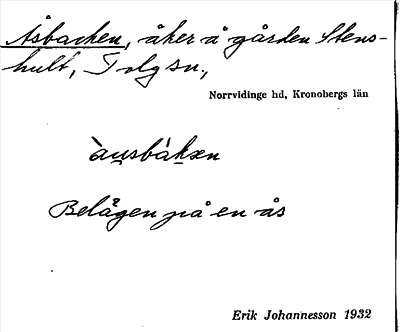 Åsbacken, åker å gården Stens-
hult, Tolg sn.,
Norrvidinge hd, Kronobergs län
àu̯sbàkæn
Belägen på en ås
Erik Johannesson 1932